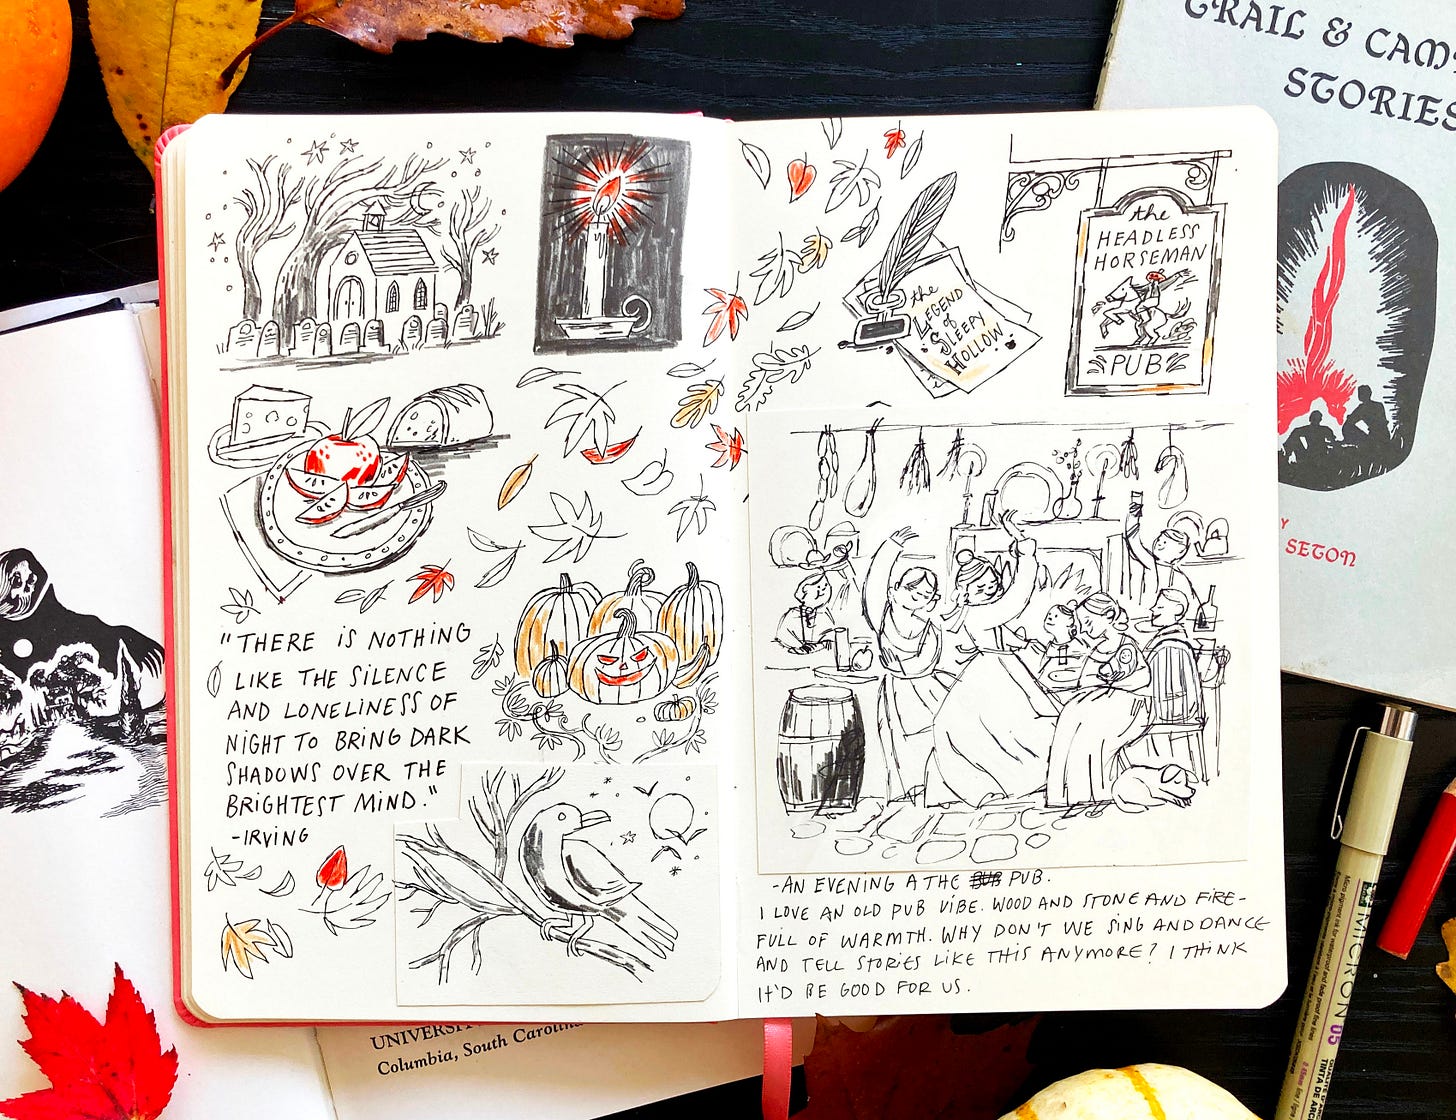 "THERE IS NOTHING
LIKE THE SILENCE
AND LONELINESS OF
NIGHT TO BRING DARK
SHADOWS OVER THE
BRIGHTEST MIND."
-IRVING
the
LEGEND
of
SLEEPY
HOLLOW
the
HEADLESS
HORSEMAN
PUB
-AN EVENING A THE PUB.
I LOVE AN OLD PUB VIBE. WOOD AND STONE AND FIRE-
FULL OF WARMTH. WHY DON'T WE SING AND DANCE
AND TELL STORIES LIKE THIS ANYMORE? I THINK
IT'D BE GOOD FOR US.
TRAIL & CAM
STORIES
Y
SETON
UNIVERSI
Columbia, South Carolina
MICRON 05